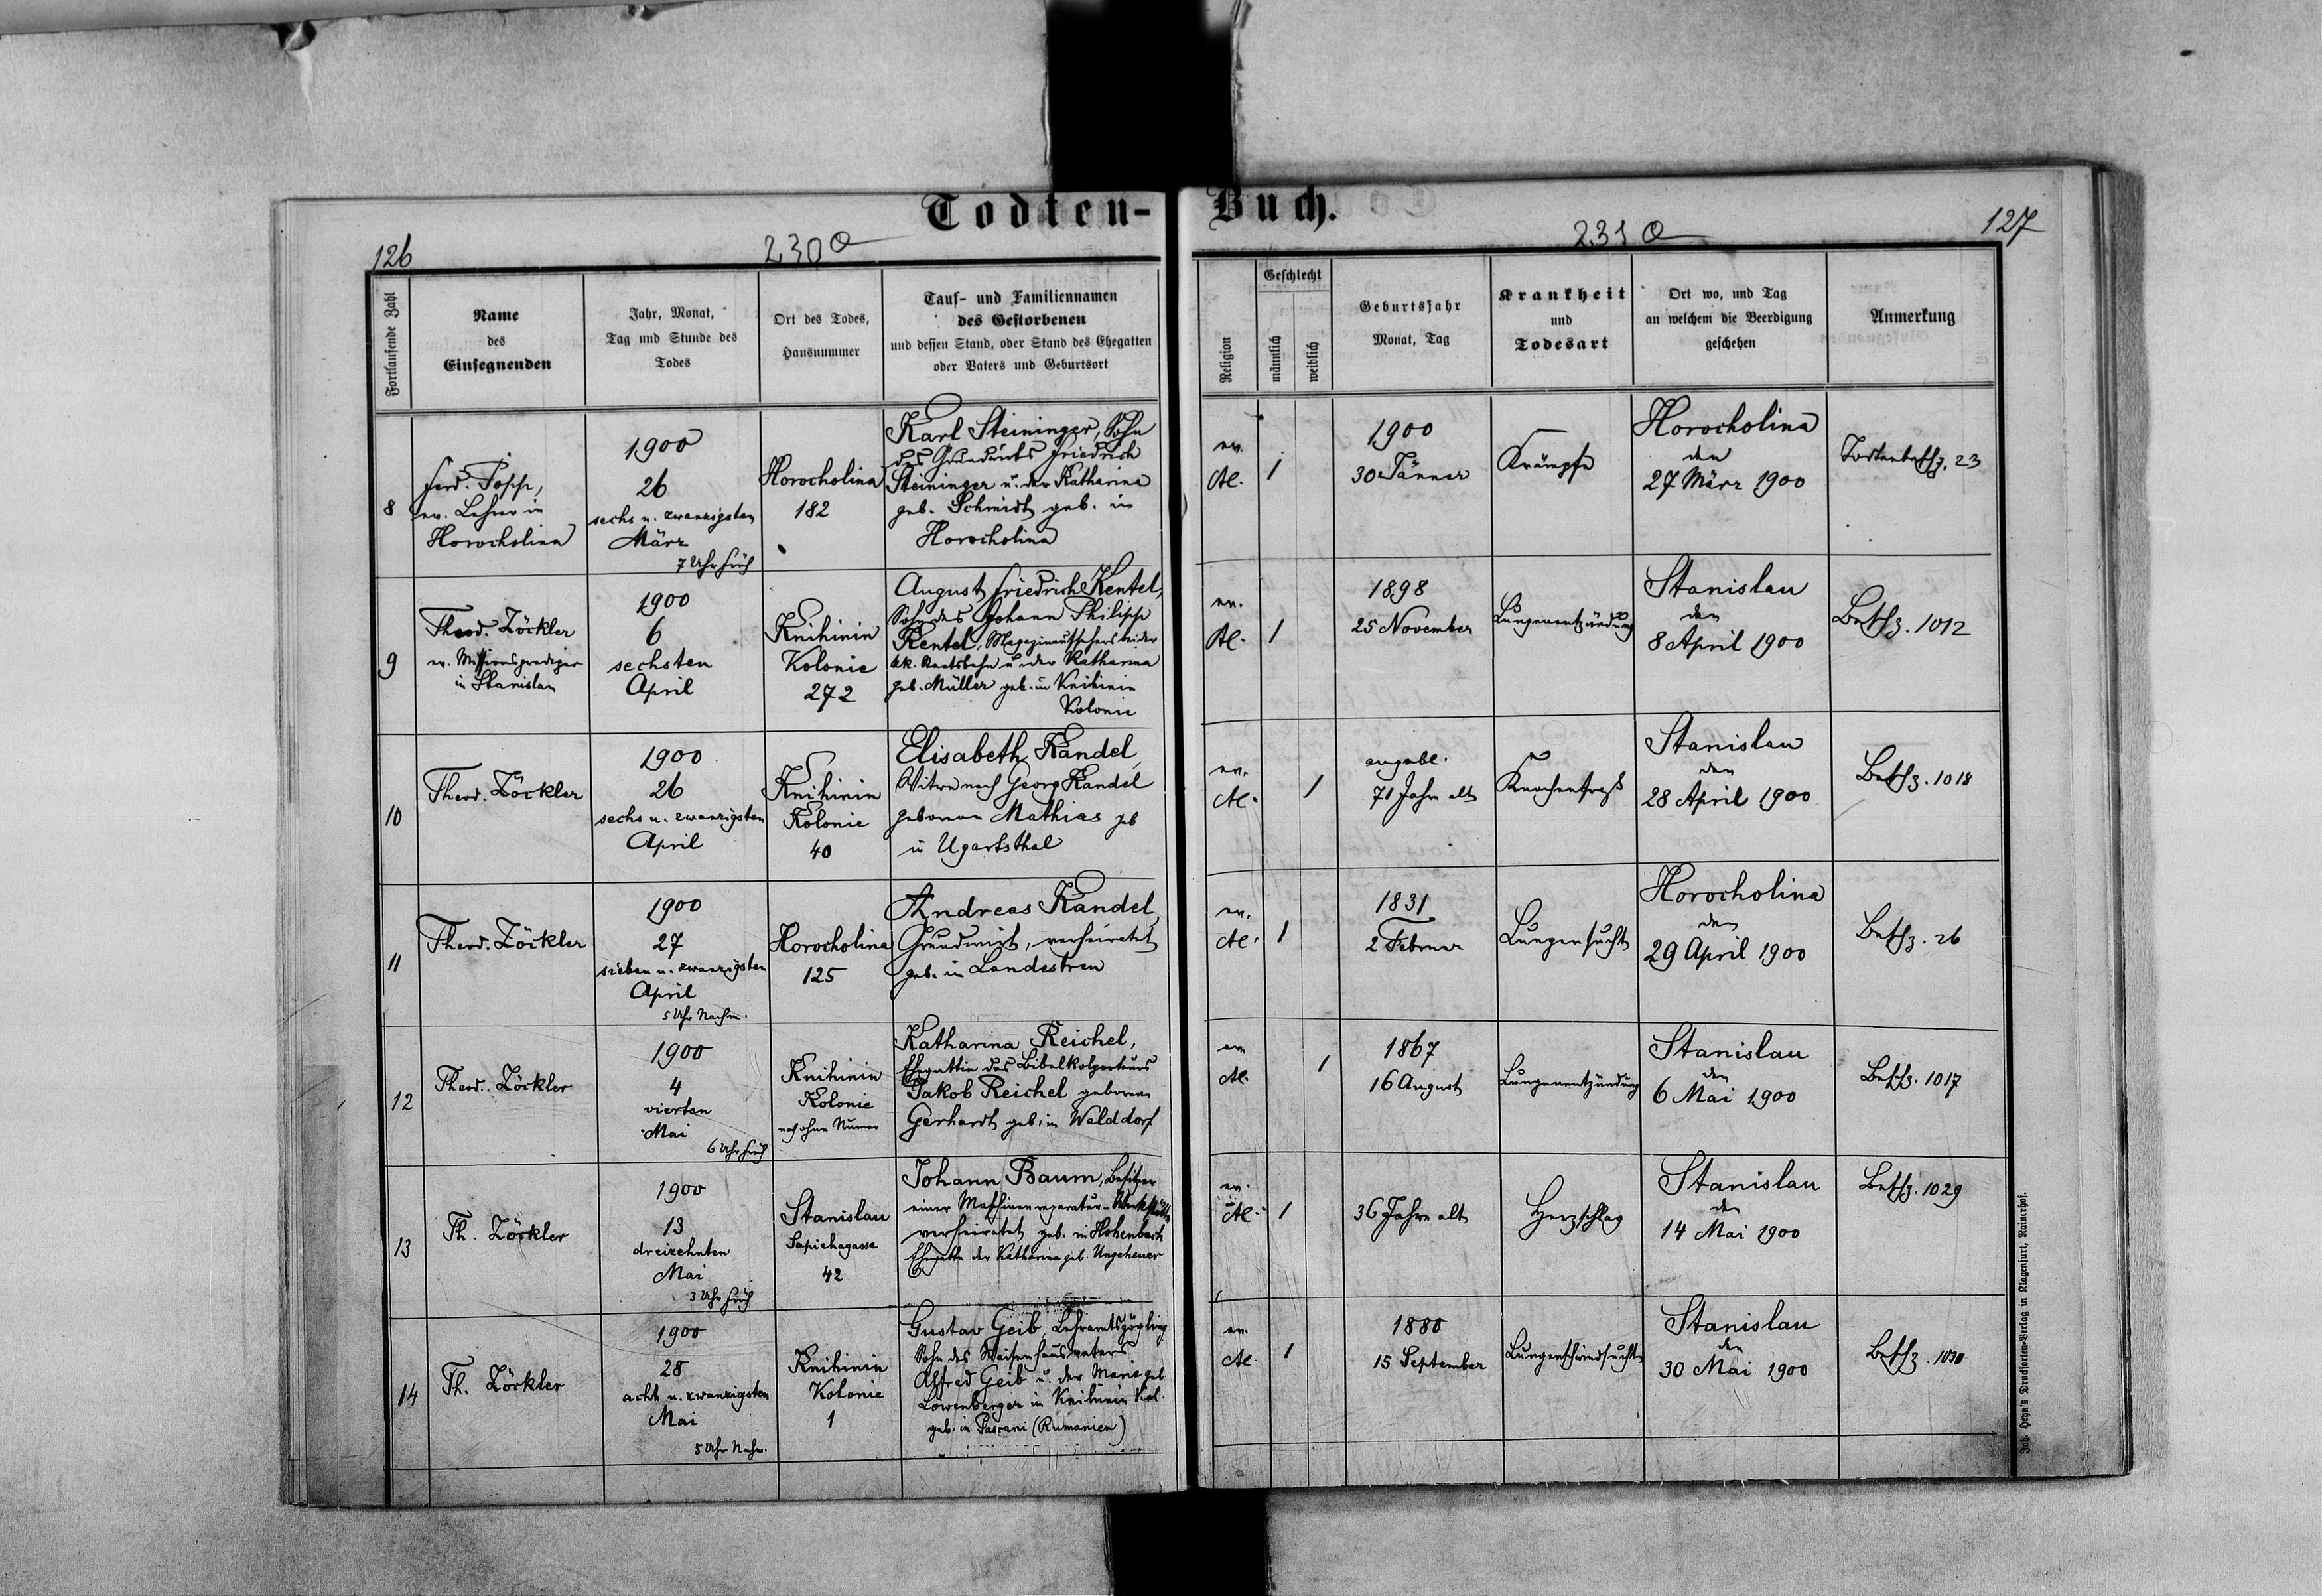 Todten-Buch.
126
230
231
127
Fortlaufende Zahl
Name
des
Einsegnenden
Jahr, Monat,
Tag und Stunde des
Todes
Ort des Todes,
Hausnummer
Tauf- und Familiennamen
des Gestorbenen
und dessen Stand, oder Stand des Ehegatten
oder Vaters und Geburtsort
Religion
Geschlecht
männlich
weiblich
Geburtsjahr
Monat, Tag
Krankheit
und
Todesart
Ort wo, und Tag
an welchem die Beerdigung
geschehen
Anmerkung
8
Ferd. Popp,
ev. Lehrer in
Horocholina
1900
26
sechs u. zwanzigsten
März
7 Uhr früh
Horocholina
182
Karl Steininger, Sohn
des Grundwirts Friedrich
Steininger u. der Katharina
geb. Schmidt geb. in
Horocholina
ev.
AC.
1
1900
30 Jänner
Krämpfe
Horocholina
den
27 März 1900
Todtenbeschz. 23
9
Theod. Zöckler
ev. Missionsprediger
in Stanislau
1900
6
sechsten
April
Knihinin
Kolonie
272
August Friedrich Kentel,
Sohn des Johann Philipp
Kentel, Magazinaufsehers bei der
k.k. Staatsbahn u. der Katharina
geb. Müller geb. in Knihinin
Kolonie
ev.
AC.
1
1898
25 November
Lungenentzündung
Stanislau
den
8 April 1900
Beschz. 1012
10
Theod. Zöckler
1900
26
sechs u. zwanzigsten
April
Knihinin
Kolonie
40
Elisabeth Kandel,
Witwe nach Georg Kandel
geborene Mathias geb
in Ugartsthal
ev.
AC.
1
angebl.
71 Jahre alt
Knochenfraß
Stanislau
den
28 April 1900
Beschz. 1018
11
Theod. Zöckler
1900
27
sieben u. zwanzigsten
April
5 Uhr Nachm.
Horocholina
125
Andreas Kandel,
Grundwirt, verheiratet
geb. in Landestreu
ev.
AC.
1
1831
2 Februar
Lungensucht
Horocholina
den
29 April 1900
Beschz. 26
12
Theod. Zöckler
1900
4
vierten
Mai
6 Uhr früh
Knihinin
Kolonie
noch ohne Numer
Katharina Reichel,
Ehegattin des Bibelkolporteurs
Jakob Reichel geborene
Gerhardt geb. in Walddorf
ev.
AC.
1
1867
16 August
Lungenentzündung
Stanislau
den
6 Mai 1900
Beschz. 1017
13
Th. Zöckler
1900
13
dreizehnten
Mai
3 Uhr früh
Stanislau
Sapiehagasse
42
Johann Baum, Besitzer
einer Maschinenreparatur-Werkstätte
verheiratet geb. in Hohenbach
Ehegatte der Katharina geb. Ungeheuer
ev.
AC.
1
36 Jahre alt
Herzschlag
Stanislau
den
14 Mai 1900
Beschz. 1029
14
Th. Zöckler
1900
28
acht u. zwanzigsten
Mai
5 Uhr Nachm.
Knihinin
Kolonie
1
Gustav Geib, Lehramtszögling
Sohn des Waisenhausvaters
Alfred Geib u. der Marie geb
Löwenberger in Knihinin Kol.
geb. in Pascani (Rumanien)
ev.
AC.
1
1880
15 September
Lungenschwindsucht
Stanislau
den
30 Mai 1900
Beschz. 1030
Joh. Heyn's Drucksorten-Verlag in Klagenfurt, Rainerhof.